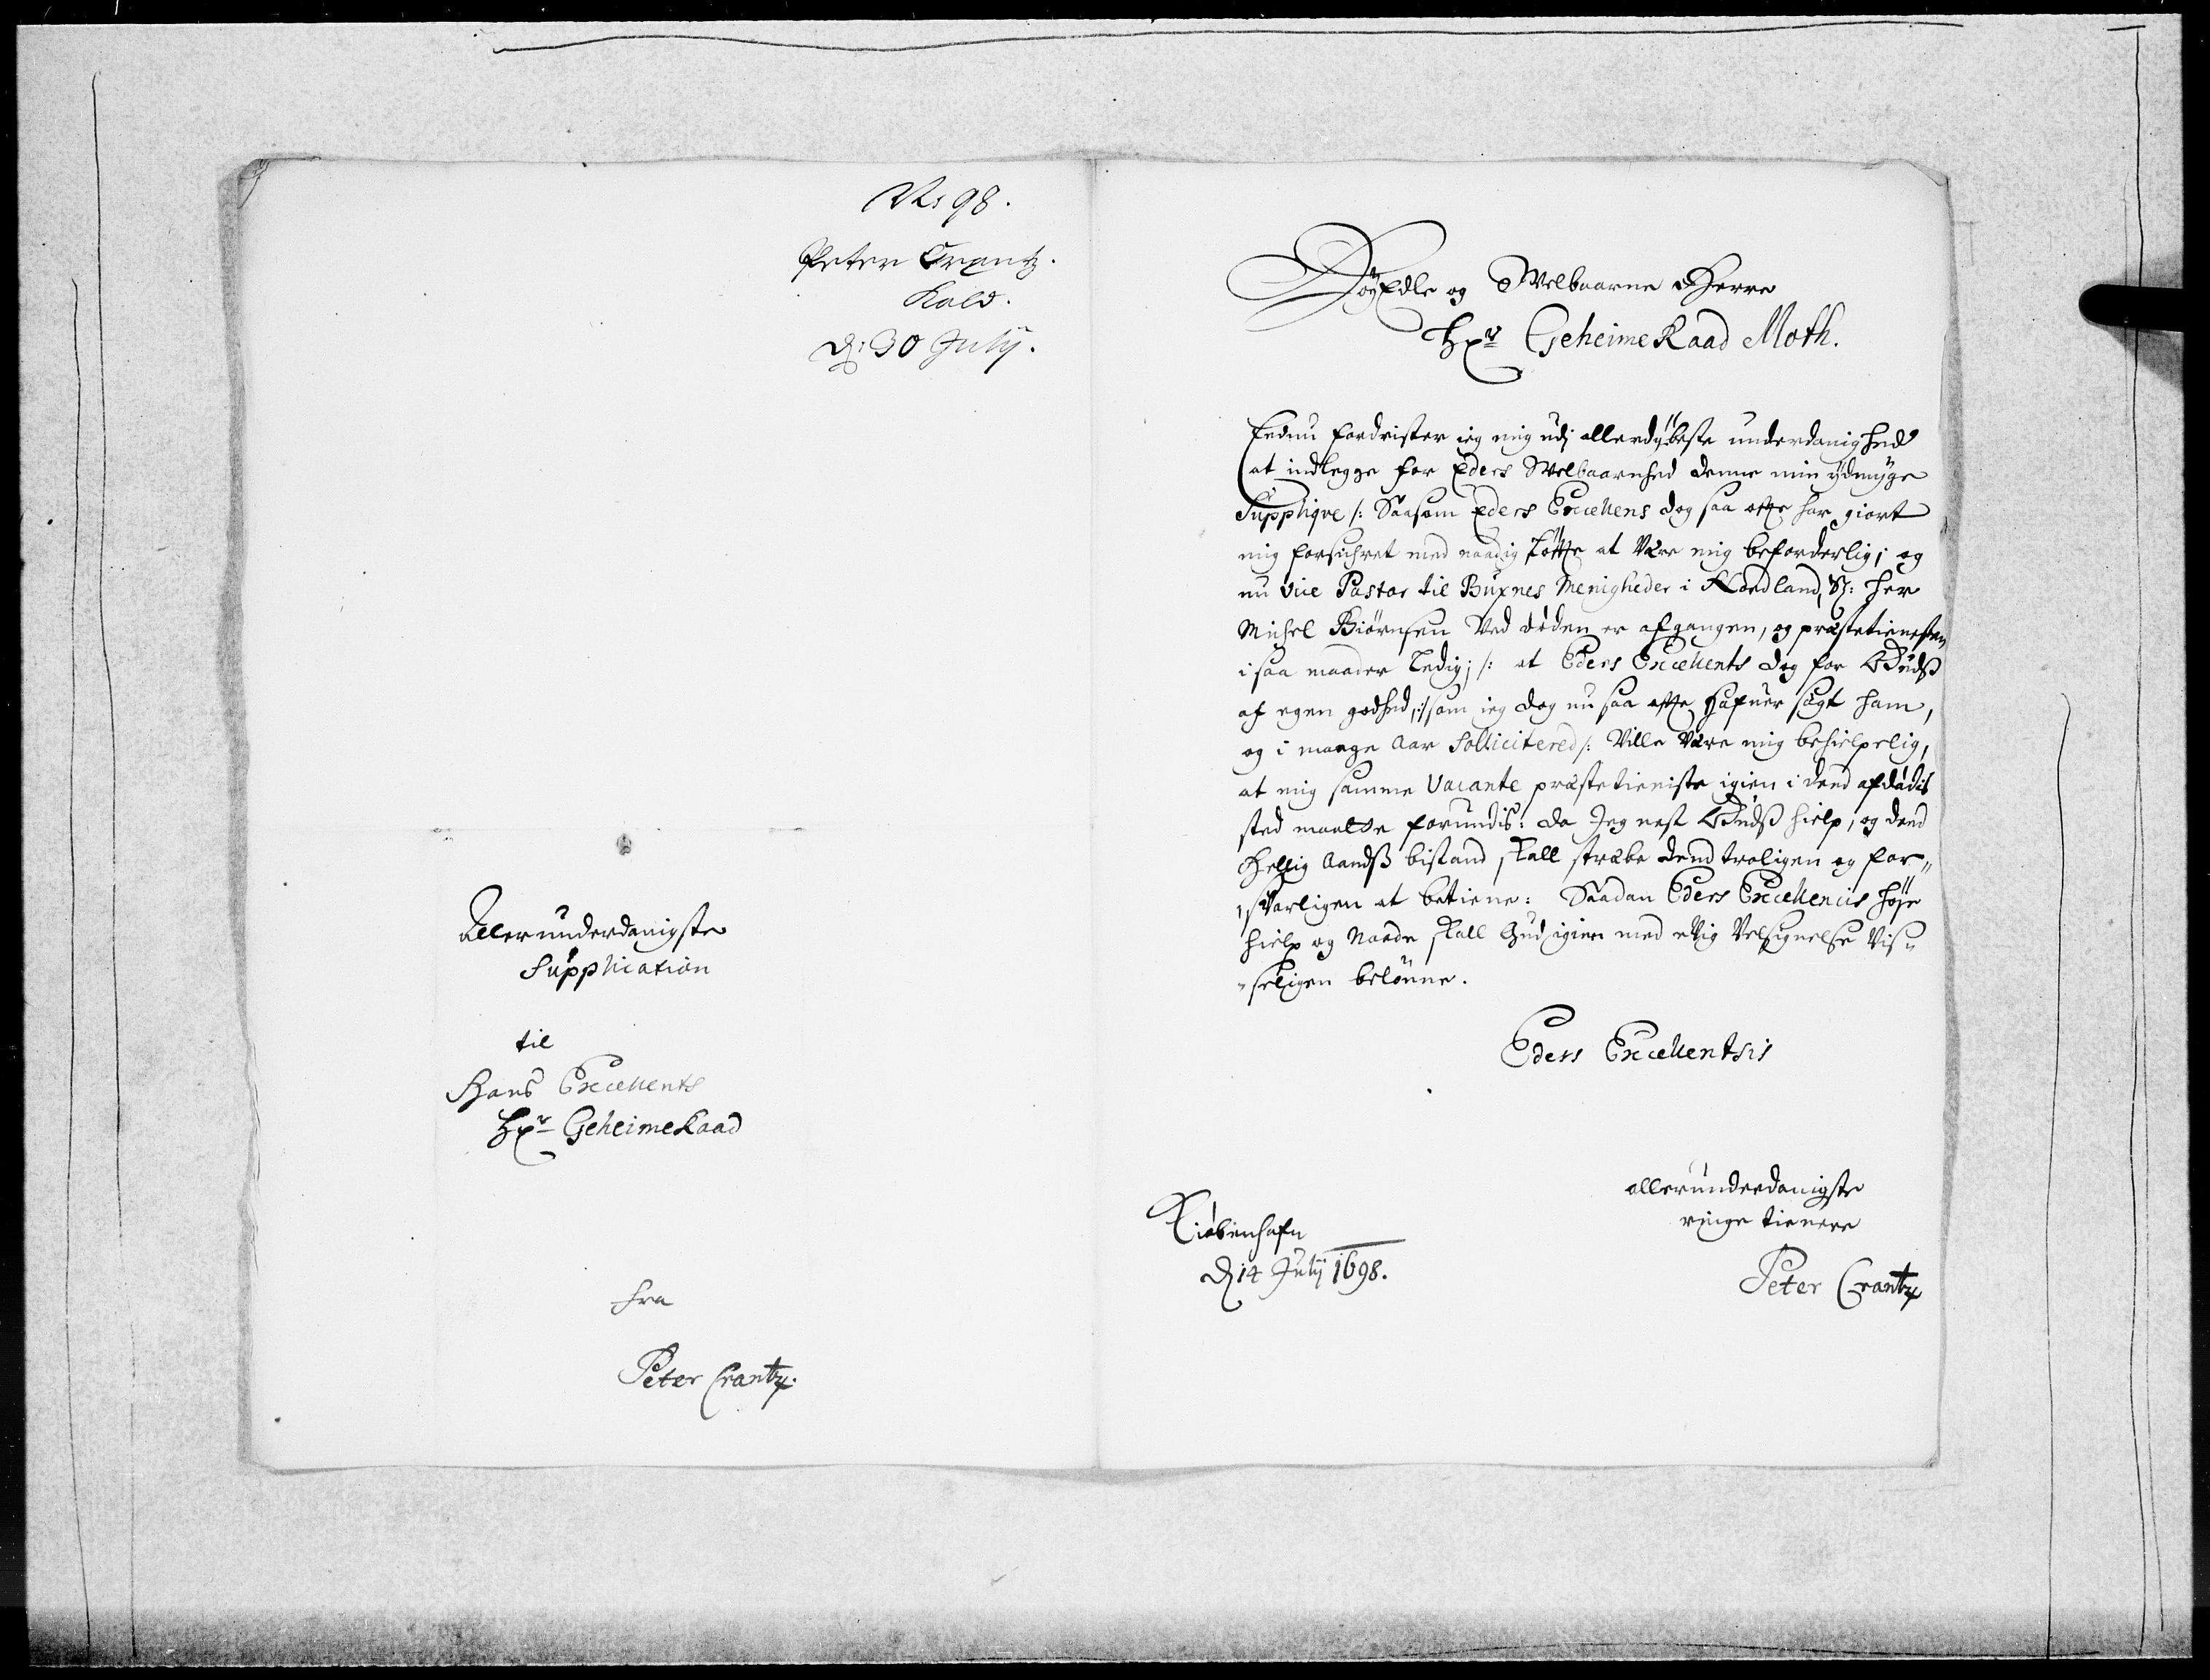 No 98.
Peter Crantz.
Kald.
d: 30 July.
Allerunderdanigste
Supplication
til
Hans Excellents
Hr Geheime Raad
fra
Peter Crantz.
HøyEdle og Welbaarne Herre
Hr Geheime Raad Moth.
Endnu fordrister ieg mig udj allerdybeste underdanighed
at indlegge for Eders Welbaarnhed denne min ydmyge
Supplique /: Saasom Eders Excellens dog saa ofte har giort
mig forsichret med naadig Løffte at Være mig beforderlig; og
nu vice Pastor til Buxnes Menigheder i Nordland, S: her
Michel Biørnsen Ved døden er afgangen, og præstetienesten
i saa maader Ledig; /: at Eders Excellents dog for Gudß
af egen godhed, :/ som ieg dog nu saa ofte hafuer søgt ham,
og i mange Aar Sollicitered /: Ville Være mig behielpelig,
at mig samme Vacante præstetieniste igien i dend afdødis
sted maatte forundis: da Jeg nest Gudß hielp, og dend
Hellig Aandß bistand skall stræbe dend troligen og for¬
¬svarligen at betiene: Saadan Eders Excellencis høje
hielp og Naade skall Gud igien med eVig Velsignelse Vis¬
¬seligen belønne.
Eders Excellentsis
allerunderdanigste
ringe tienere
Peter Crantz
Kiøbenhafn
d 14 July 1698.